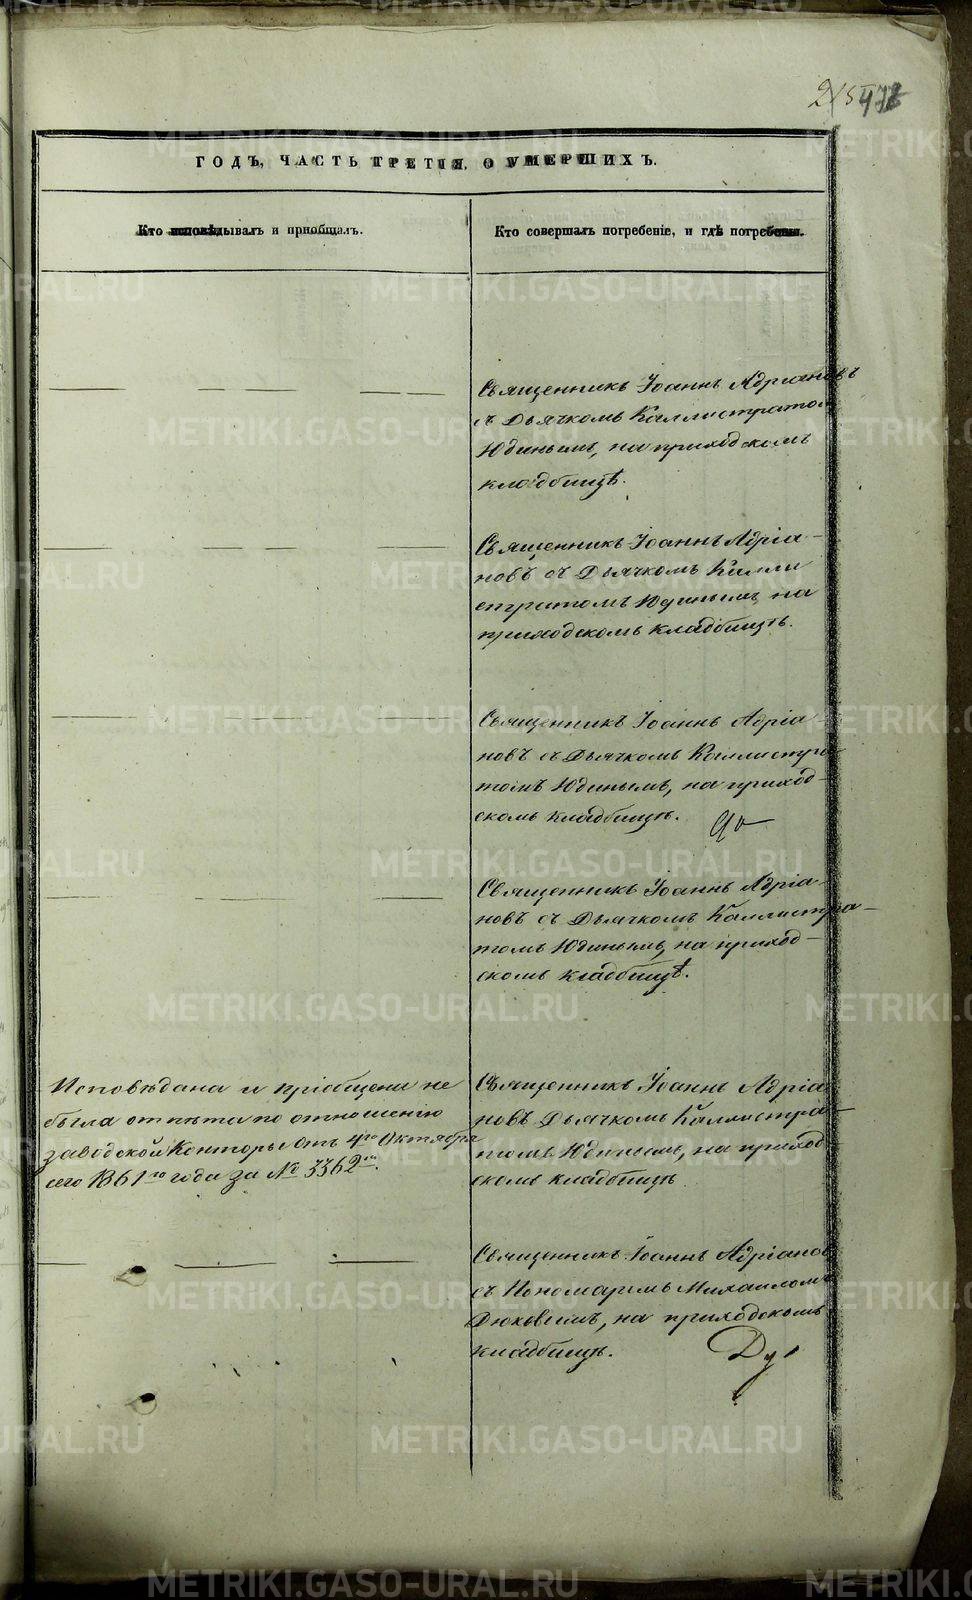 ГОДЪ, ЧАСТЬ ТРЕТІЯ, О УМЕРШИХЪ.
Кто исповѣдывалъ и пріобщалъ.
Кто совершалъ погребеніе, и гдѣ погребены.
Священникъ Іоаннъ Адріановъ
съ Дьячкомъ Каллистратом
Юдинымъ, на приходскомъ
кладбищѣ.
Священникъ Іоаннъ Адріа-
новъ съ Дьячкомъ Калли
стратомъ Юдинымъ, на
приходскомъ кладбищѣ.
Священникъ Іоаннъ Адріа-
новъ съ Дьячкомъ Каллистра-
томъ Юдинымъ, на приход-
скомъ кладбищѣ.
Священникъ Іоаннъ Адріа-
новъ съ Дьячкомъ Каллистра-
томъ Юдинымъ, на приход-
скомъ кладбищѣ.
Исповѣдана и пріобщена не
была отпѣта по отношенію
заводской Конторы отъ 4го Октября
сего 1861го года за № 3362м.
Священникъ Іоаннъ Адріа
новъ Дьячкомъ Каллистра-
томъ Юдинымъ, на приход
скомъ кладбищѣ
Священникъ Іоаннъ Адріанов
съ Пономаремъ Михаиломъ
Дюковымъ, на приходскомъ
кладбищѣ.
METRIKI.GASO-URAL.RU